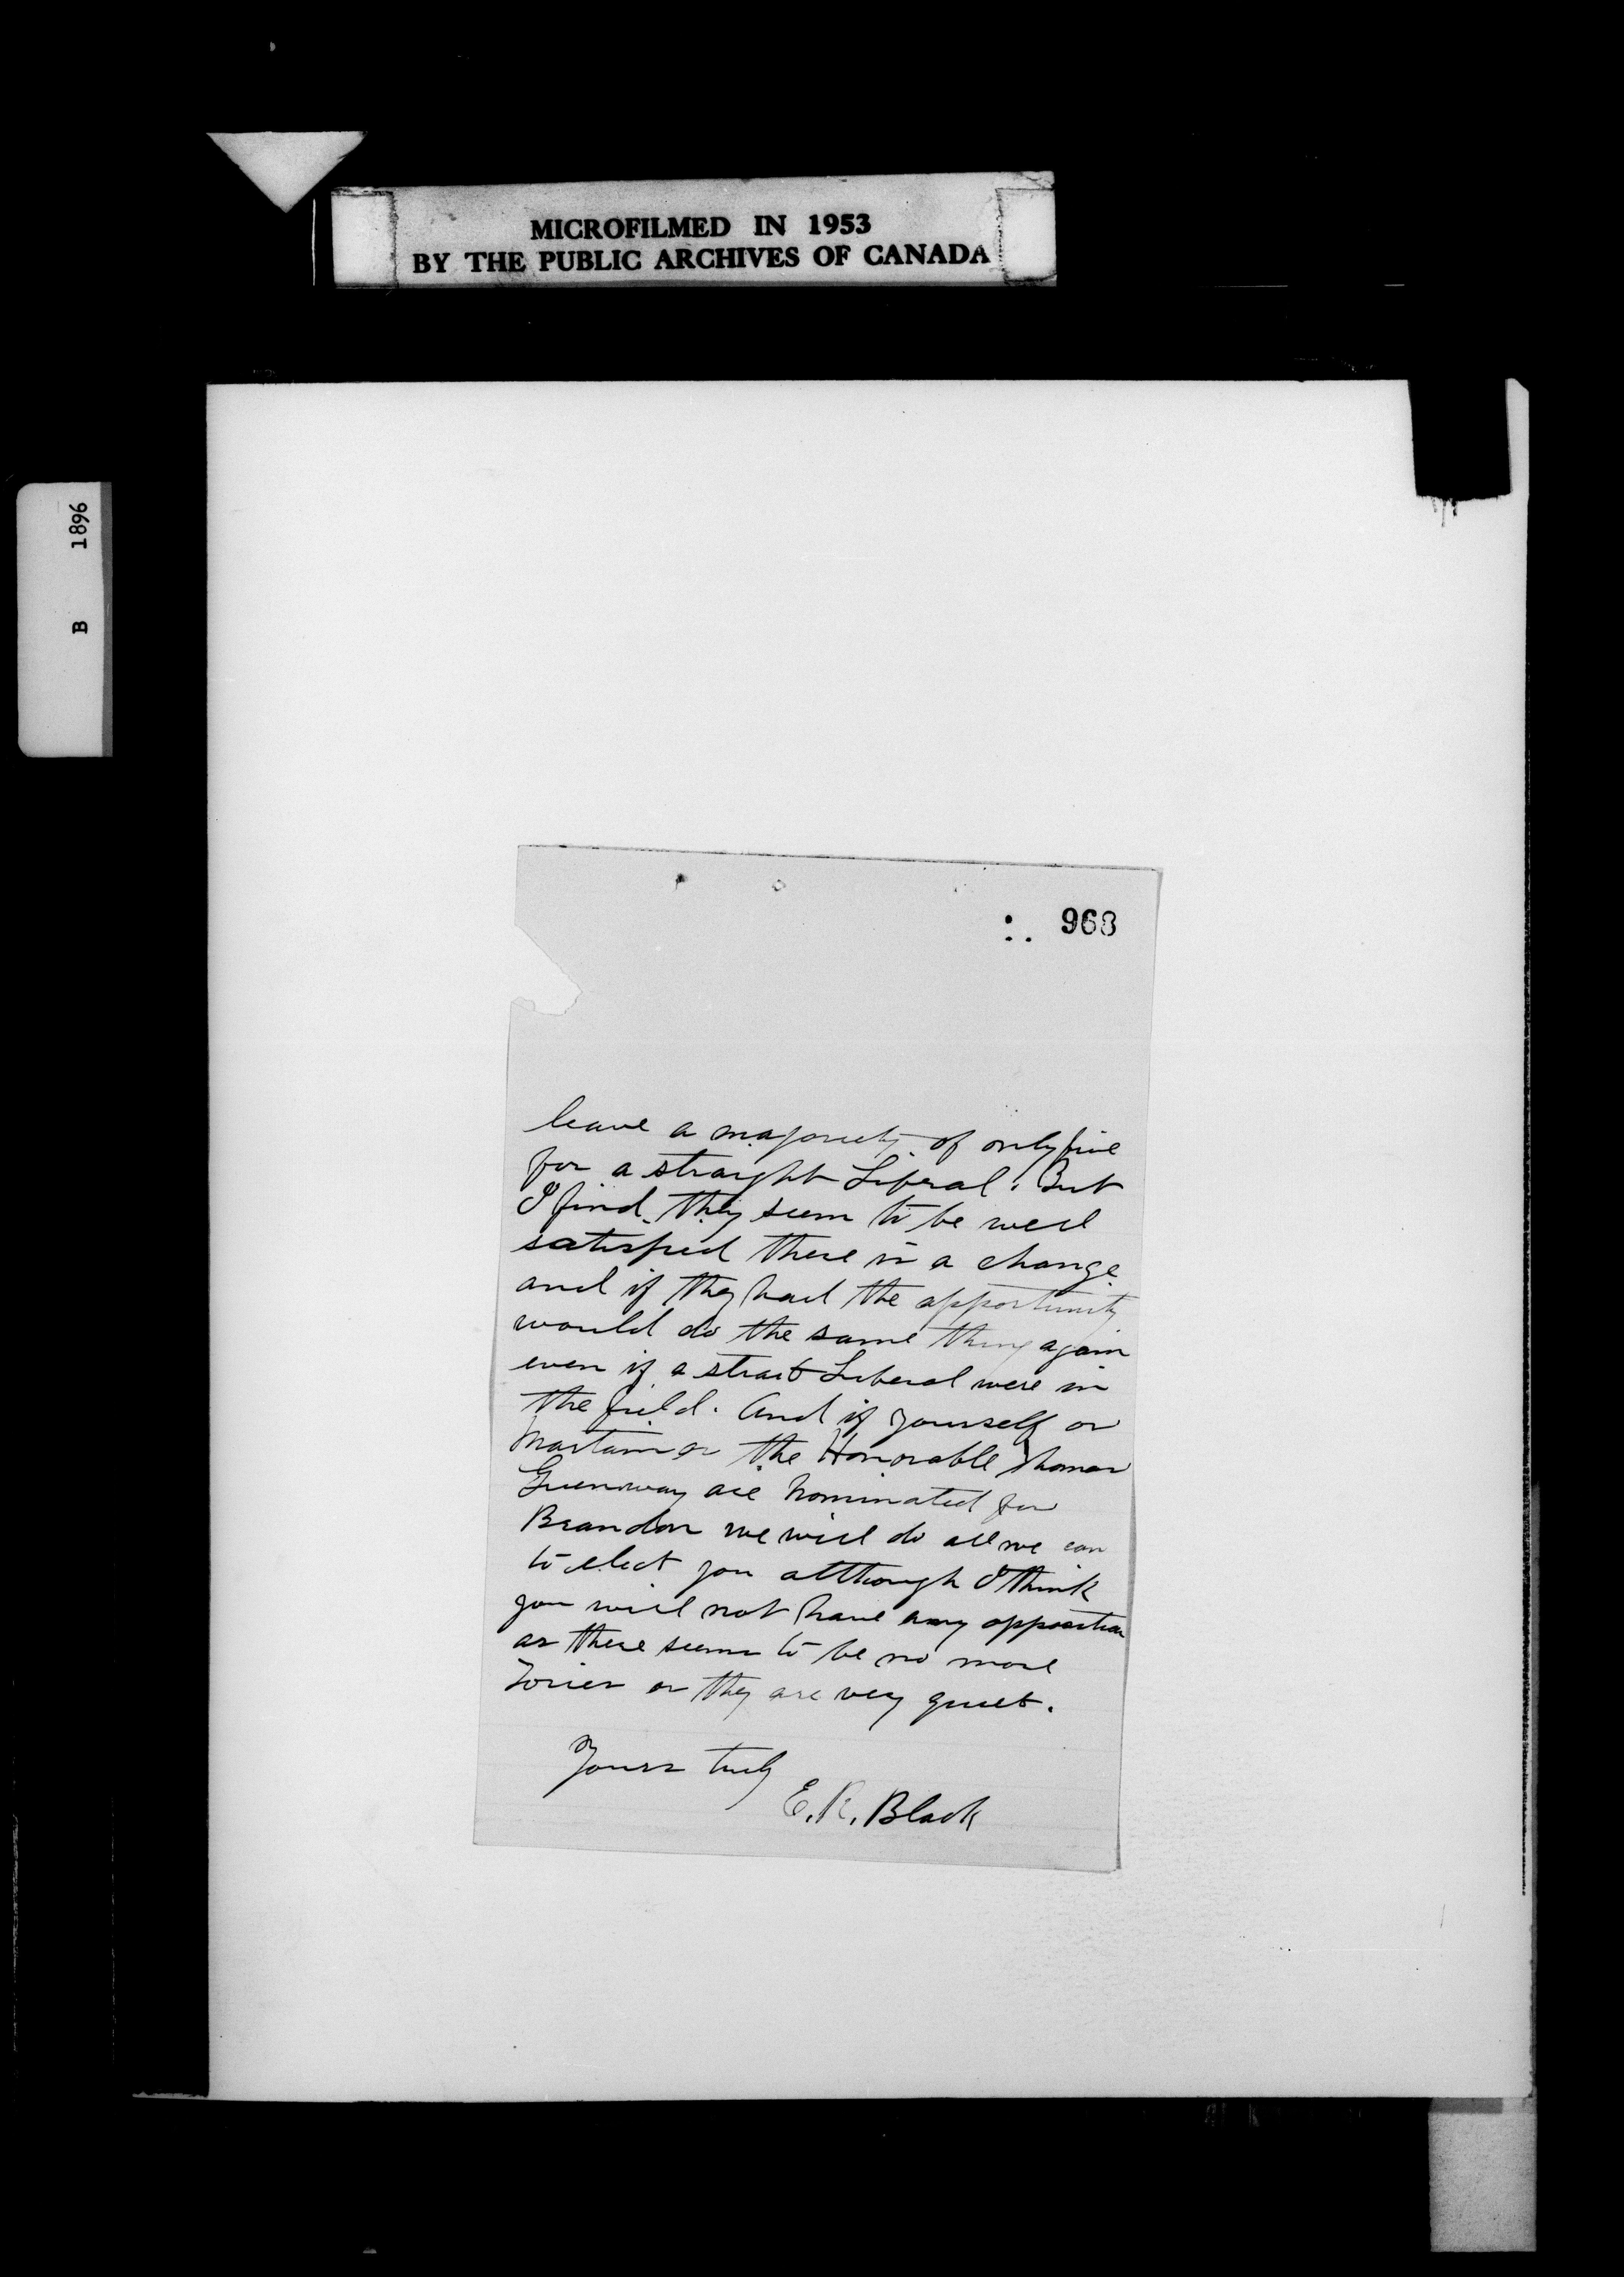 MICROFILMED IN 1953
BY THE PUBLIC ARCHIVES OF CANADA
B 1896
968
leave a majority of only five
for a straight Liberal. But
I find they seem to be well
satisfied there is a change
and if they had the opportunity
would do the same thing again
even if a strait Liberal were in
the field. And if yourself or
Martin or the Honorable Thomas
Greenway are nominated for
Brandon we will do all we can
to elect you although I think
you will not have any opposition
as there seems to be no more
Tories or they are very quiet.
Yours truly
E. R. Black